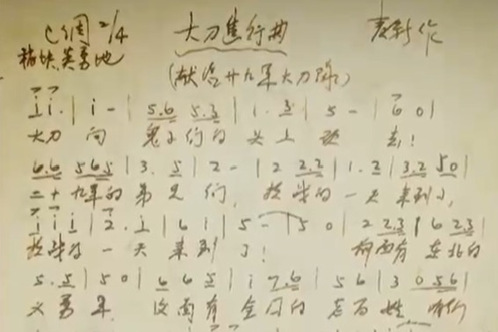 C调 2/4 大刀進行曲 麦新作
稍快英勇地
(献给廿九军大刀队)
i i. | i - | 5.6 5.3 | 1. 3 | 5 - | 6 0 |
大刀 向 鬼子们的 头上 砍 去!
6.6 565 | 3. 5 | 2 - | 2 2.2 | 1.2 | 3.2 50 |
二十九军的弟兄们, 抗战的一天来到了,
i i i | 2. i | 6 i | 5 - | 5 0 | 2 2.3 | 6 2.3 |
抗战的一天来到了! 前面有东北的
5. 5 | 5 0 | 6 6 5 | i 7.6 | 5 6 | 3 0 5 6 |
义勇军, 后面有全国的老百姓 咱们